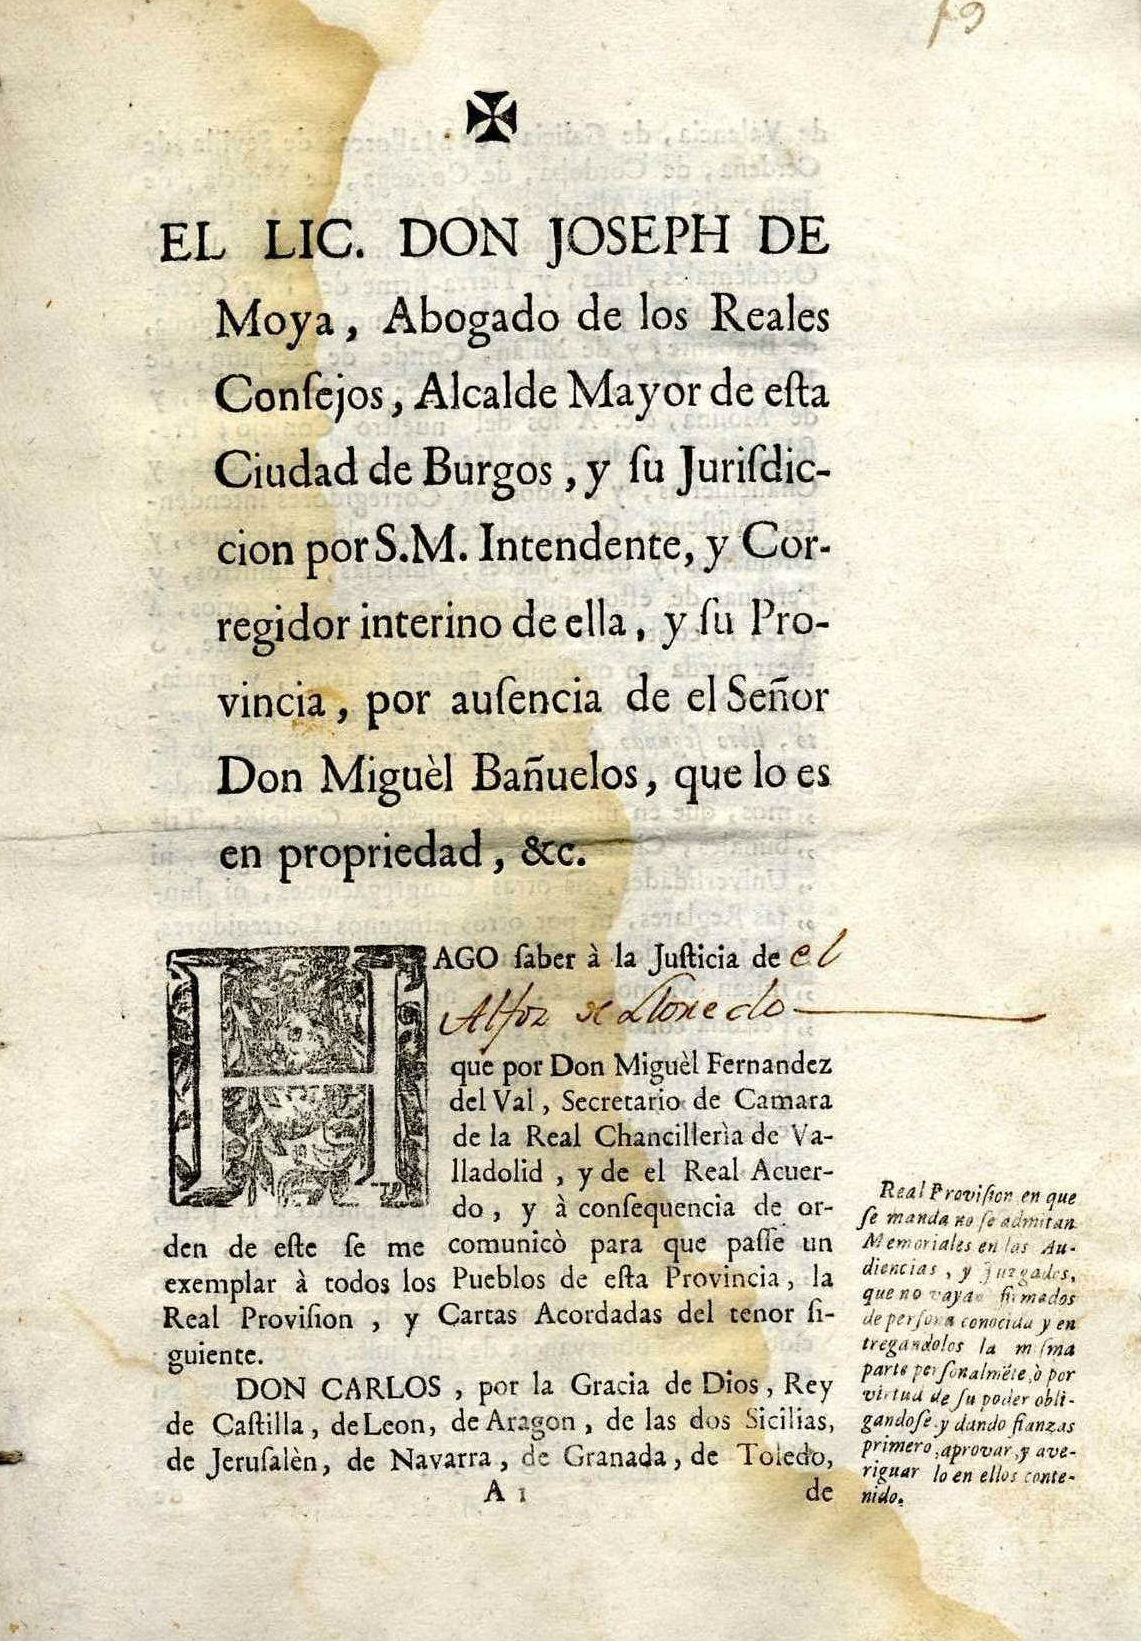 19
EL LIC. DON JOSEPH DE
Moya, Abogado de los Reales
Conſejos, Alcalde Mayor de eſta
Ciudad de Burgos, y ſu Juriſdic-
cion por S.M. Intendente, y Cor-
regidor interino de ella, y ſu Pro-
vincia, por auſencia de el Señor
Don Miguèl Bañuelos, que lo es
en propriedad, &c.
HAGO ſaber à la Juſticia de el
Alfoz de Lloredo
que por Don Miguèl Fernandez
del Val, Secretario de Camara
de la Real Chancillerìa de Va-
lladolid, y de el Real Acuer-
do, y à conſequencia de or-
den de eſte ſe me comunicò para que paſſe un
exemplar à todos los Pueblos de eſta Provincia, la
Real Proviſion, y Cartas Acordadas del tenor ſi-
guiente.
DON CARLOS, por la Gracia de Dios, Rey
de Caſtilla, de Leon, de Aragon, de las dos Sicilias,
de Jeruſalèn, de Navarra, de Granada, de Toledo,
A 1 de
Real Proviſion en que
ſe manda no ſe admitan
Memoriales en las Au-
diencias, y Juzgados,
que no vayan firmados
de perſona conocida y en
tregandolos la miſma
parte perſonalmẽte, ò por
virtud de ſu poder obli-
gandoſe, y dando fianzas
primero, aprovar, y ave-
riguar lo en ellos conte-
nido.